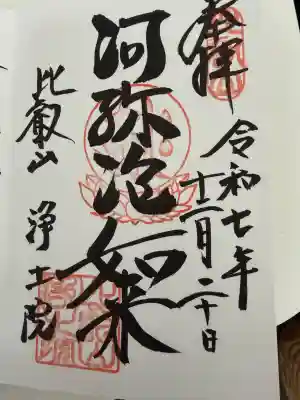 奉拝
令和七年
十二月二十日
阿弥陀如来
比叡山 浄土院